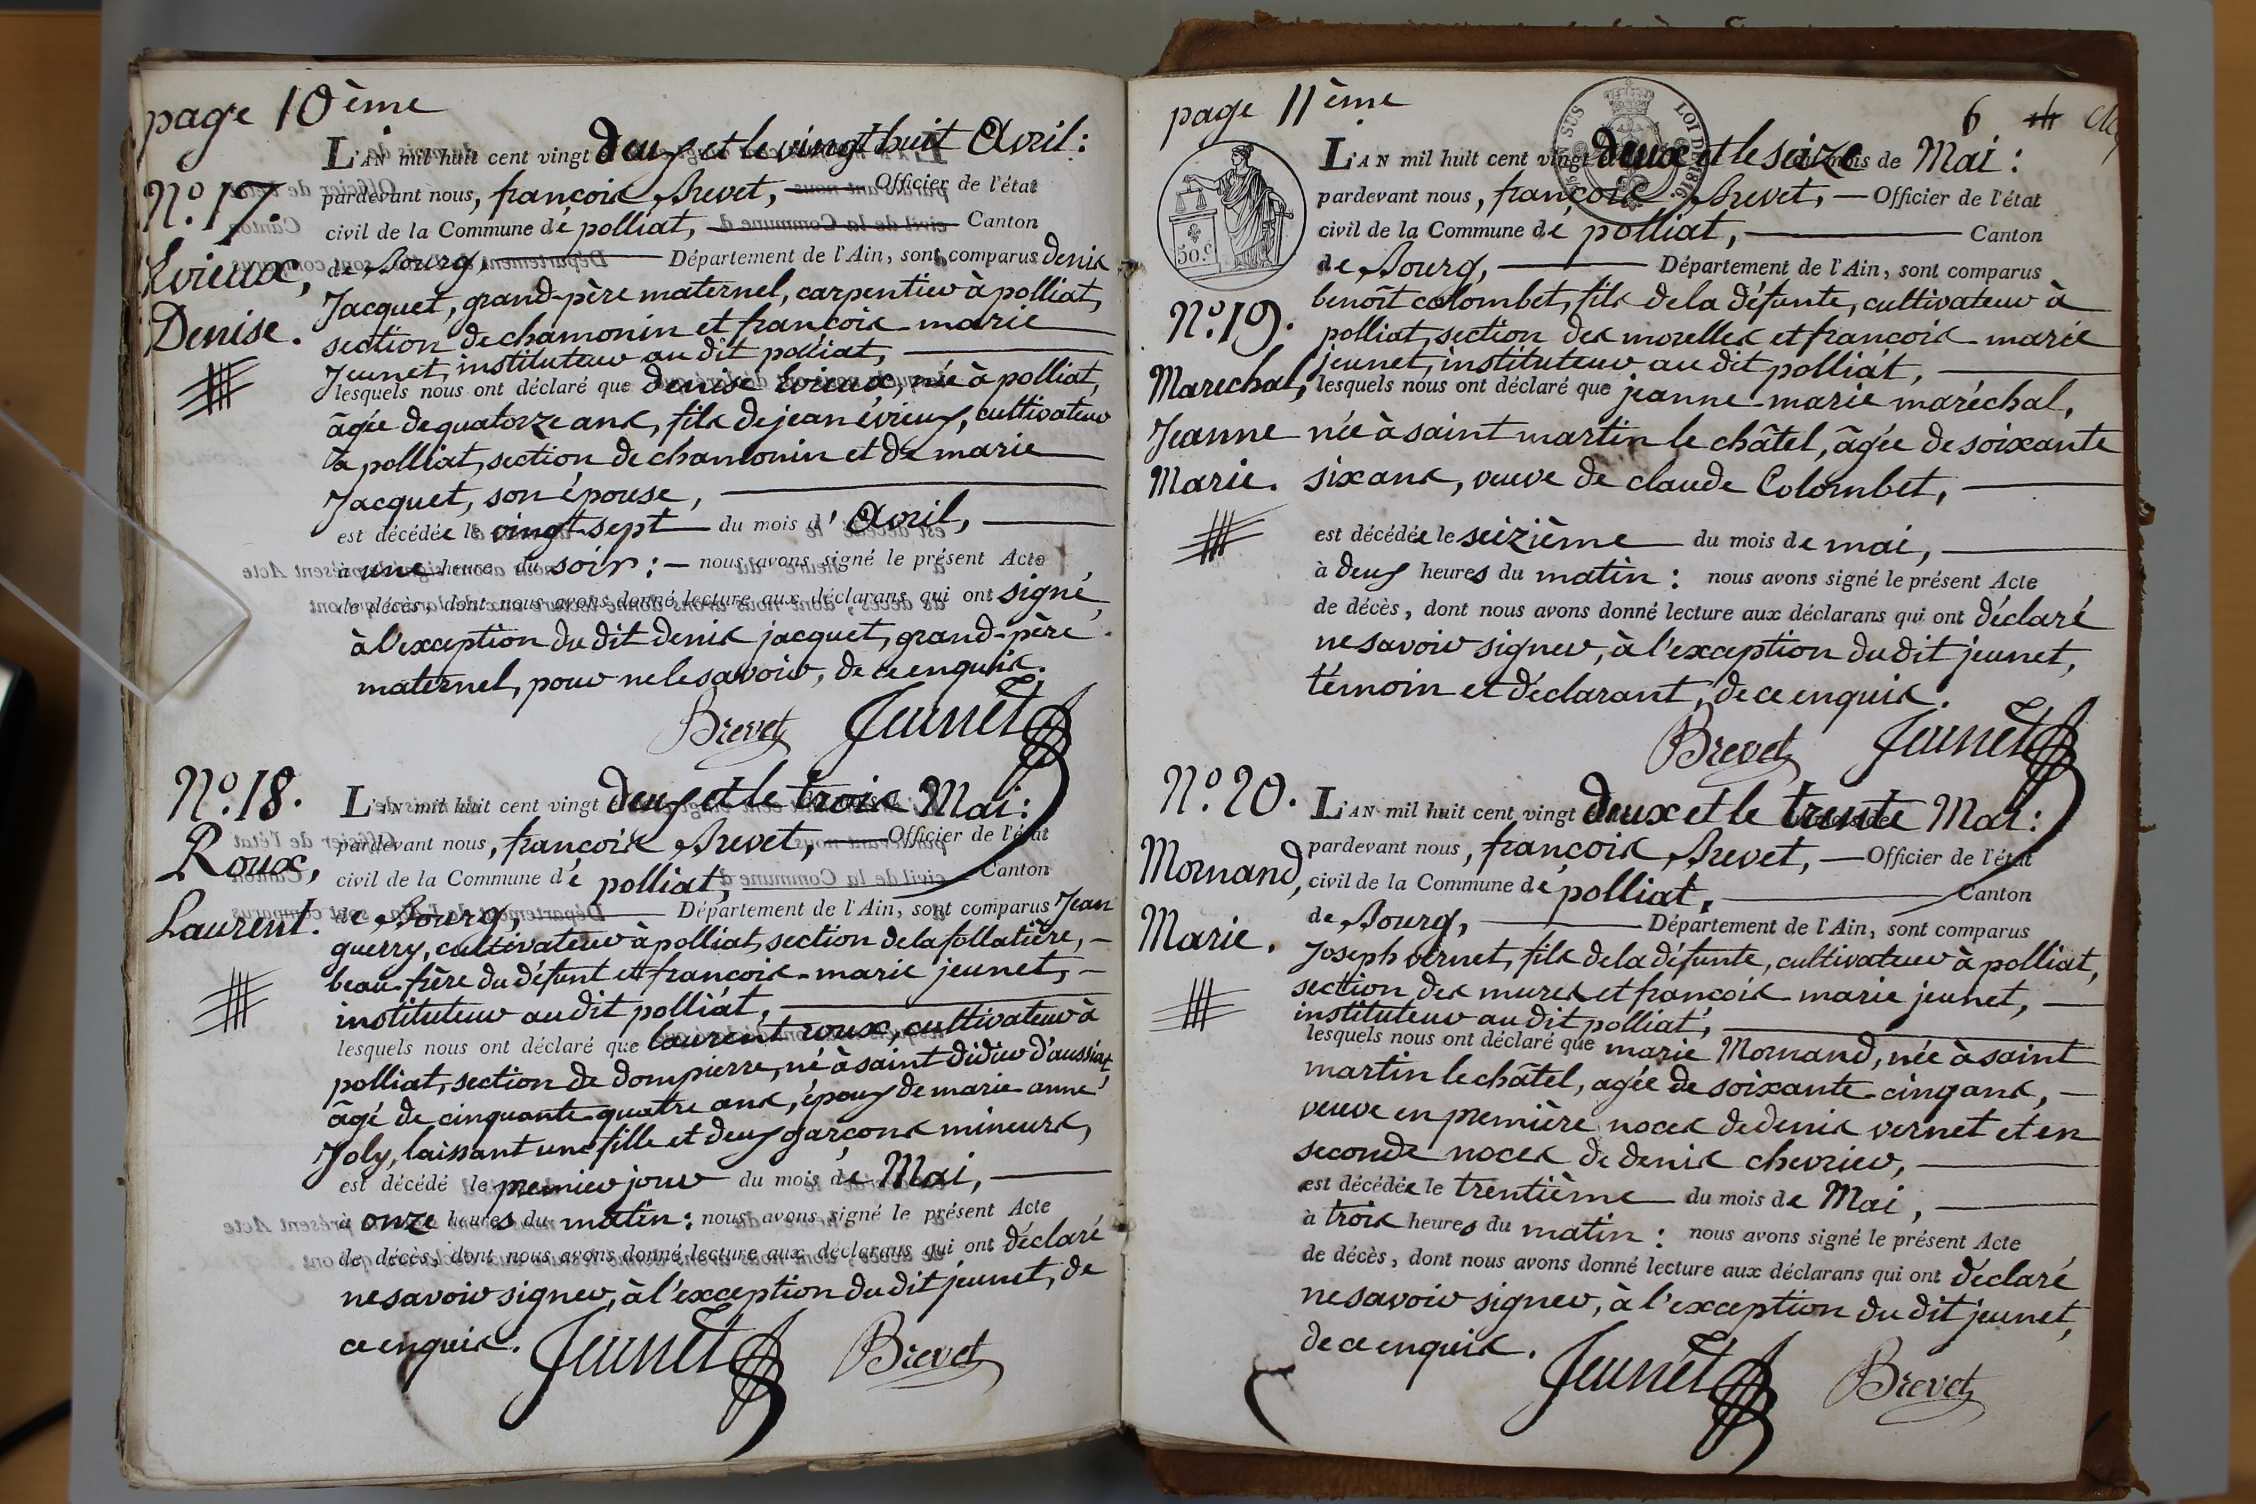 page 10ème
L'AN mil huit cent vingt deux et le vingt huit Avril:
N.º 17.
pardevant nous, françois Brevet, Officier de l'état
civil de la Commune de polliat, Canton
Evieux,
de Bourg, Département de l'Ain, sont comparus denis
Jacquet, grand-père maternel, carpentier à polliat,
Denise.
section de chamonin et françois-marie
Jeunet, instituteur au dit polliat,
lesquels nous ont déclaré que denise Evieux, née à polliat,
âgée de quatorze ans, fils de jean évieux, cultivateur
à polliat, section de chamonin et de marie
Jacquet, son épouse,
est décédée le vingt-sept du mois d'Avril,
à une heure du soir: nous avons signé le présent Acte
de décès, dont nous avons donné lecture aux déclarans qui ont signé,
à l'exception du dit denis jacquet, grand-père
maternel, pour ne le savoir, de ce enquis.
Brevet Jeunet
N.º 18.
L'AN mil huit cent vingt deux et le trois Mai:
pardevant nous, françois Brevet, Officier de l'état
Roux,
civil de la Commune de polliat, Canton
Laurent.
de Bourg, Département de l'Ain, sont comparus Jean
guerry, cultivateur à polliat, section de la follatière,
beau-frère du défunt et françois-marie jeunet,
instituteur au dit polliat,
lesquels nous ont déclaré que laurent roux, cultivateur à
polliat, section de dompierre, né à saint didier d'aussiat,
âgé de cinquante-quatre ans, époux de marie-anne
Joly, laissant une fille et deux garçons mineurs,
est décédé le premier jour du mois de Mai,
à onze heures du matin: nous avons signé le présent Acte
de décès, dont nous avons donné lecture aux déclarans qui ont déclaré
ne savoir signer, à l'exception du dit jeunet, de
ce enquis. Jeunet Brevet
page 11ème
6
L'AN mil huit cent vingt deux et le seize du mois de Mai:
pardevant nous, françois Brevet, Officier de l'état
civil de la Commune de polliat, Canton
50.c
de Bourg, Département de l'Ain, sont comparus
benoît colombet, fils de la défunte, cultivateur à
N.º 19.
polliat, section des morelles et françois-marie
jeunet, instituteur au dit polliat,
Marechal,
lesquels nous ont déclaré que jeanne-marie maréchal,
Jeanne
née à saint martin le châtel, âgée de soixante
Marie.
six ans, veuve de claude Colombet,
est décédée le seizième du mois de mai,
à deux heures du matin: nous avons signé le présent Acte
de décès, dont nous avons donné lecture aux déclarans qui ont déclaré
ne savoir signer, à l'exception du dit jeunet,
témoin et déclarant, de ce enquis.
Brevet Jeunet
N.º 20.
L'AN mil huit cent vingt deux et le trente Mai:
pardevant nous, françois Brevet, Officier de l'état
Mornand,
civil de la Commune de polliat, Canton
Marie.
de Bourg, Département de l'Ain, sont comparus
Joseph vernet, fils de la défunte, cultivateur à polliat,
section des mures et françois-marie jeunet,
instituteur au dit polliat,
lesquels nous ont déclaré que marie Mornand, née à saint
martin le châtel, agée de soixante-cinq ans,
veuve en première noces de denis vernet et en
seconde noces de denis chevrier,
est décédée le trentième du mois de Mai,
à trois heures du matin: nous avons signé le présent Acte
de décès, dont nous avons donné lecture aux déclarans qui ont déclaré
ne savoir signer, à l'exception du dit jeunet,
de ce enquis.
Jeunet Brevet